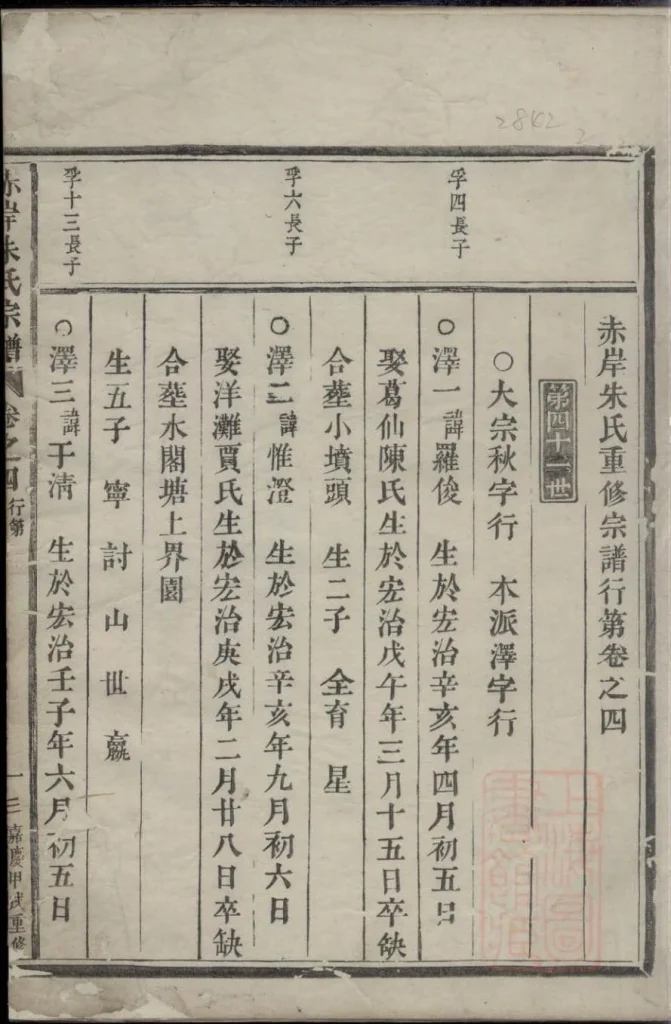 赤岸朱氏重修宗譜行第卷之四
第四十二世
○大宗秋字行 本派澤字行
孚四長子
○澤一諱羅俊 生於宏治辛亥年四月初五日
娶葛仙陳氏生於宏治戊午年三月十五日卒缺
合葬小墳頭 生二子 全育 星
孚六長子
○澤二諱惟澄 生於宏治辛亥年九月初六日
娶洋灘賈氏生於宏治庚戌年二月廿八日卒缺
合葬水閣塘上界園
生五子 寧 討 山 世 嬴
孚十三長子
○澤三諱于清 生於宏治壬子年六月初五日
赤岸朱氏宗譜 卷之四 行第
嘉慶甲戌重修
2842